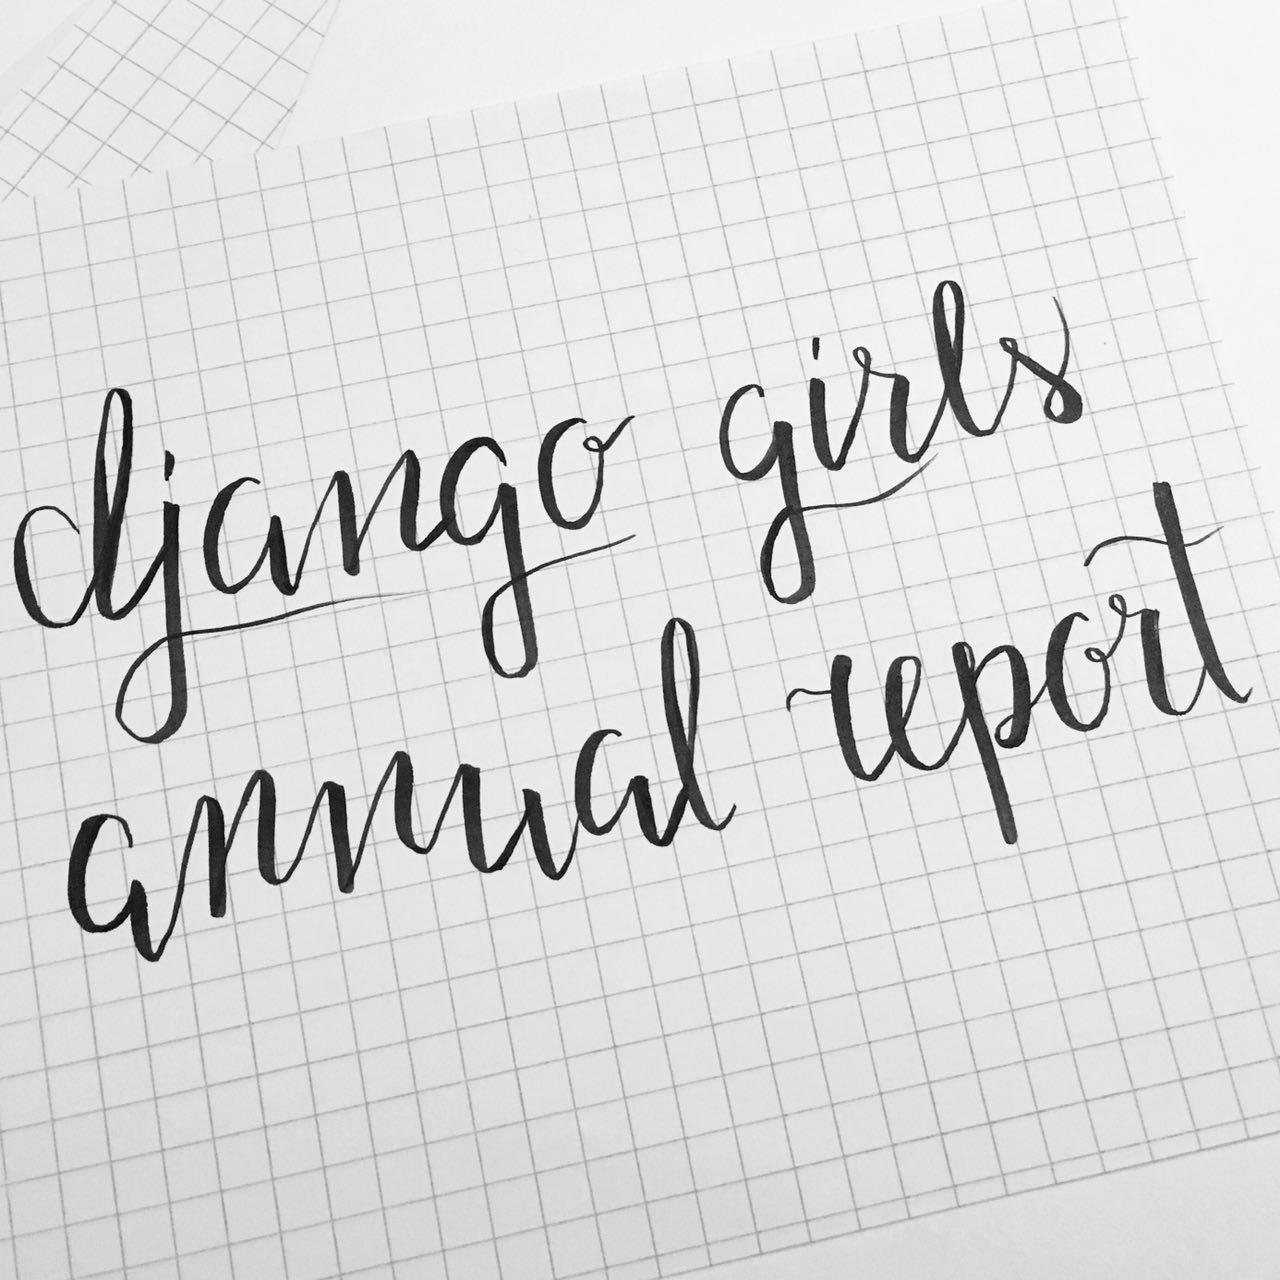 django girls
annual report